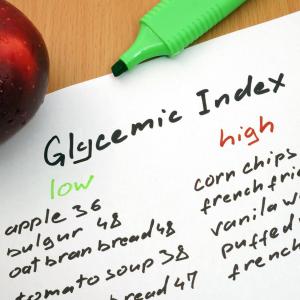 Glycemic Index
low
apple 36
bulgur 48
oat bran bread 48
tomato soup 38
bread 47
high
corn chips
french
vanila
puffed
french